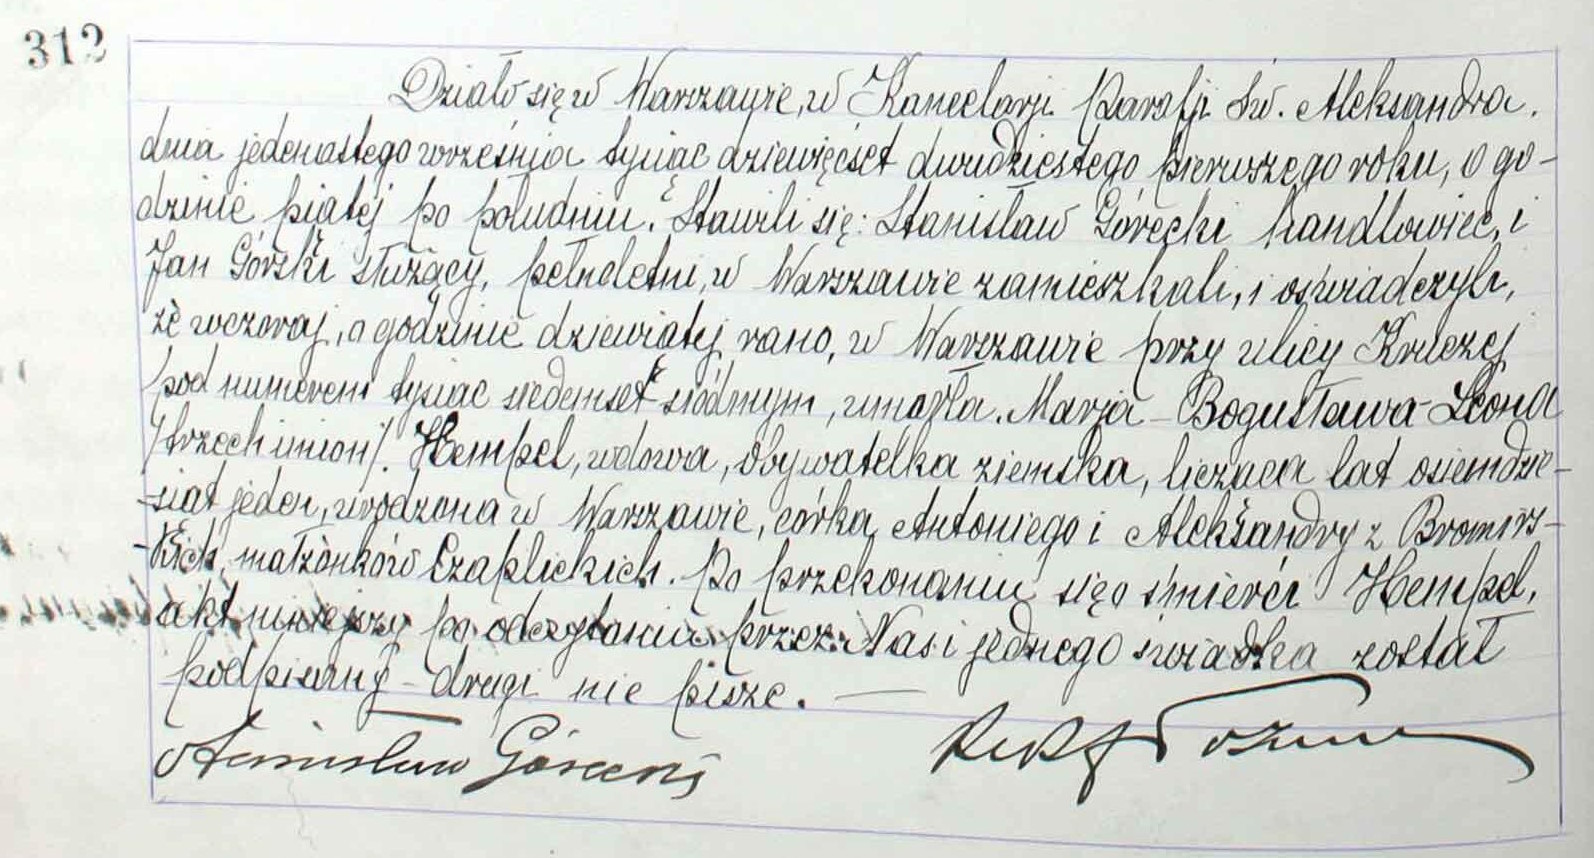 312
Działo się w Warszawie, w Kancelarji Parafji Św. Aleksandra.
dnia jedenastego września tysiąc dziewięćset dwudziestego pierwszego roku, o go-
dzinie piątej po południu. Stawili się: Stanisław Górecki handlowiec, i
Jan Górski służący, pełnoletni, w Warszawie zamieszkali, i oświadczyli,
że wczoraj, o godzinie dziewiątej rano, w Warszawie przy ulicy Kruczej
pod numerem tysiąc siedemset siódmym, umarła. Marja-Bogusława-Leona
/trzech imion/. Hempel, wdowa, obywatelka ziemska, licząca lat osiemdzie-
-siąt jeden, urodzona w Warszawie, córka Antoniego i Aleksandry z Bromirs-
-kich, małżonków Czaplickich. Po przekonaniu się o śmierci Hempel,
akt niniejszy po odczytaniu przez Nas i jednego świadka został
podpisany - drugi nie pisze. —
Stanisław Górecki